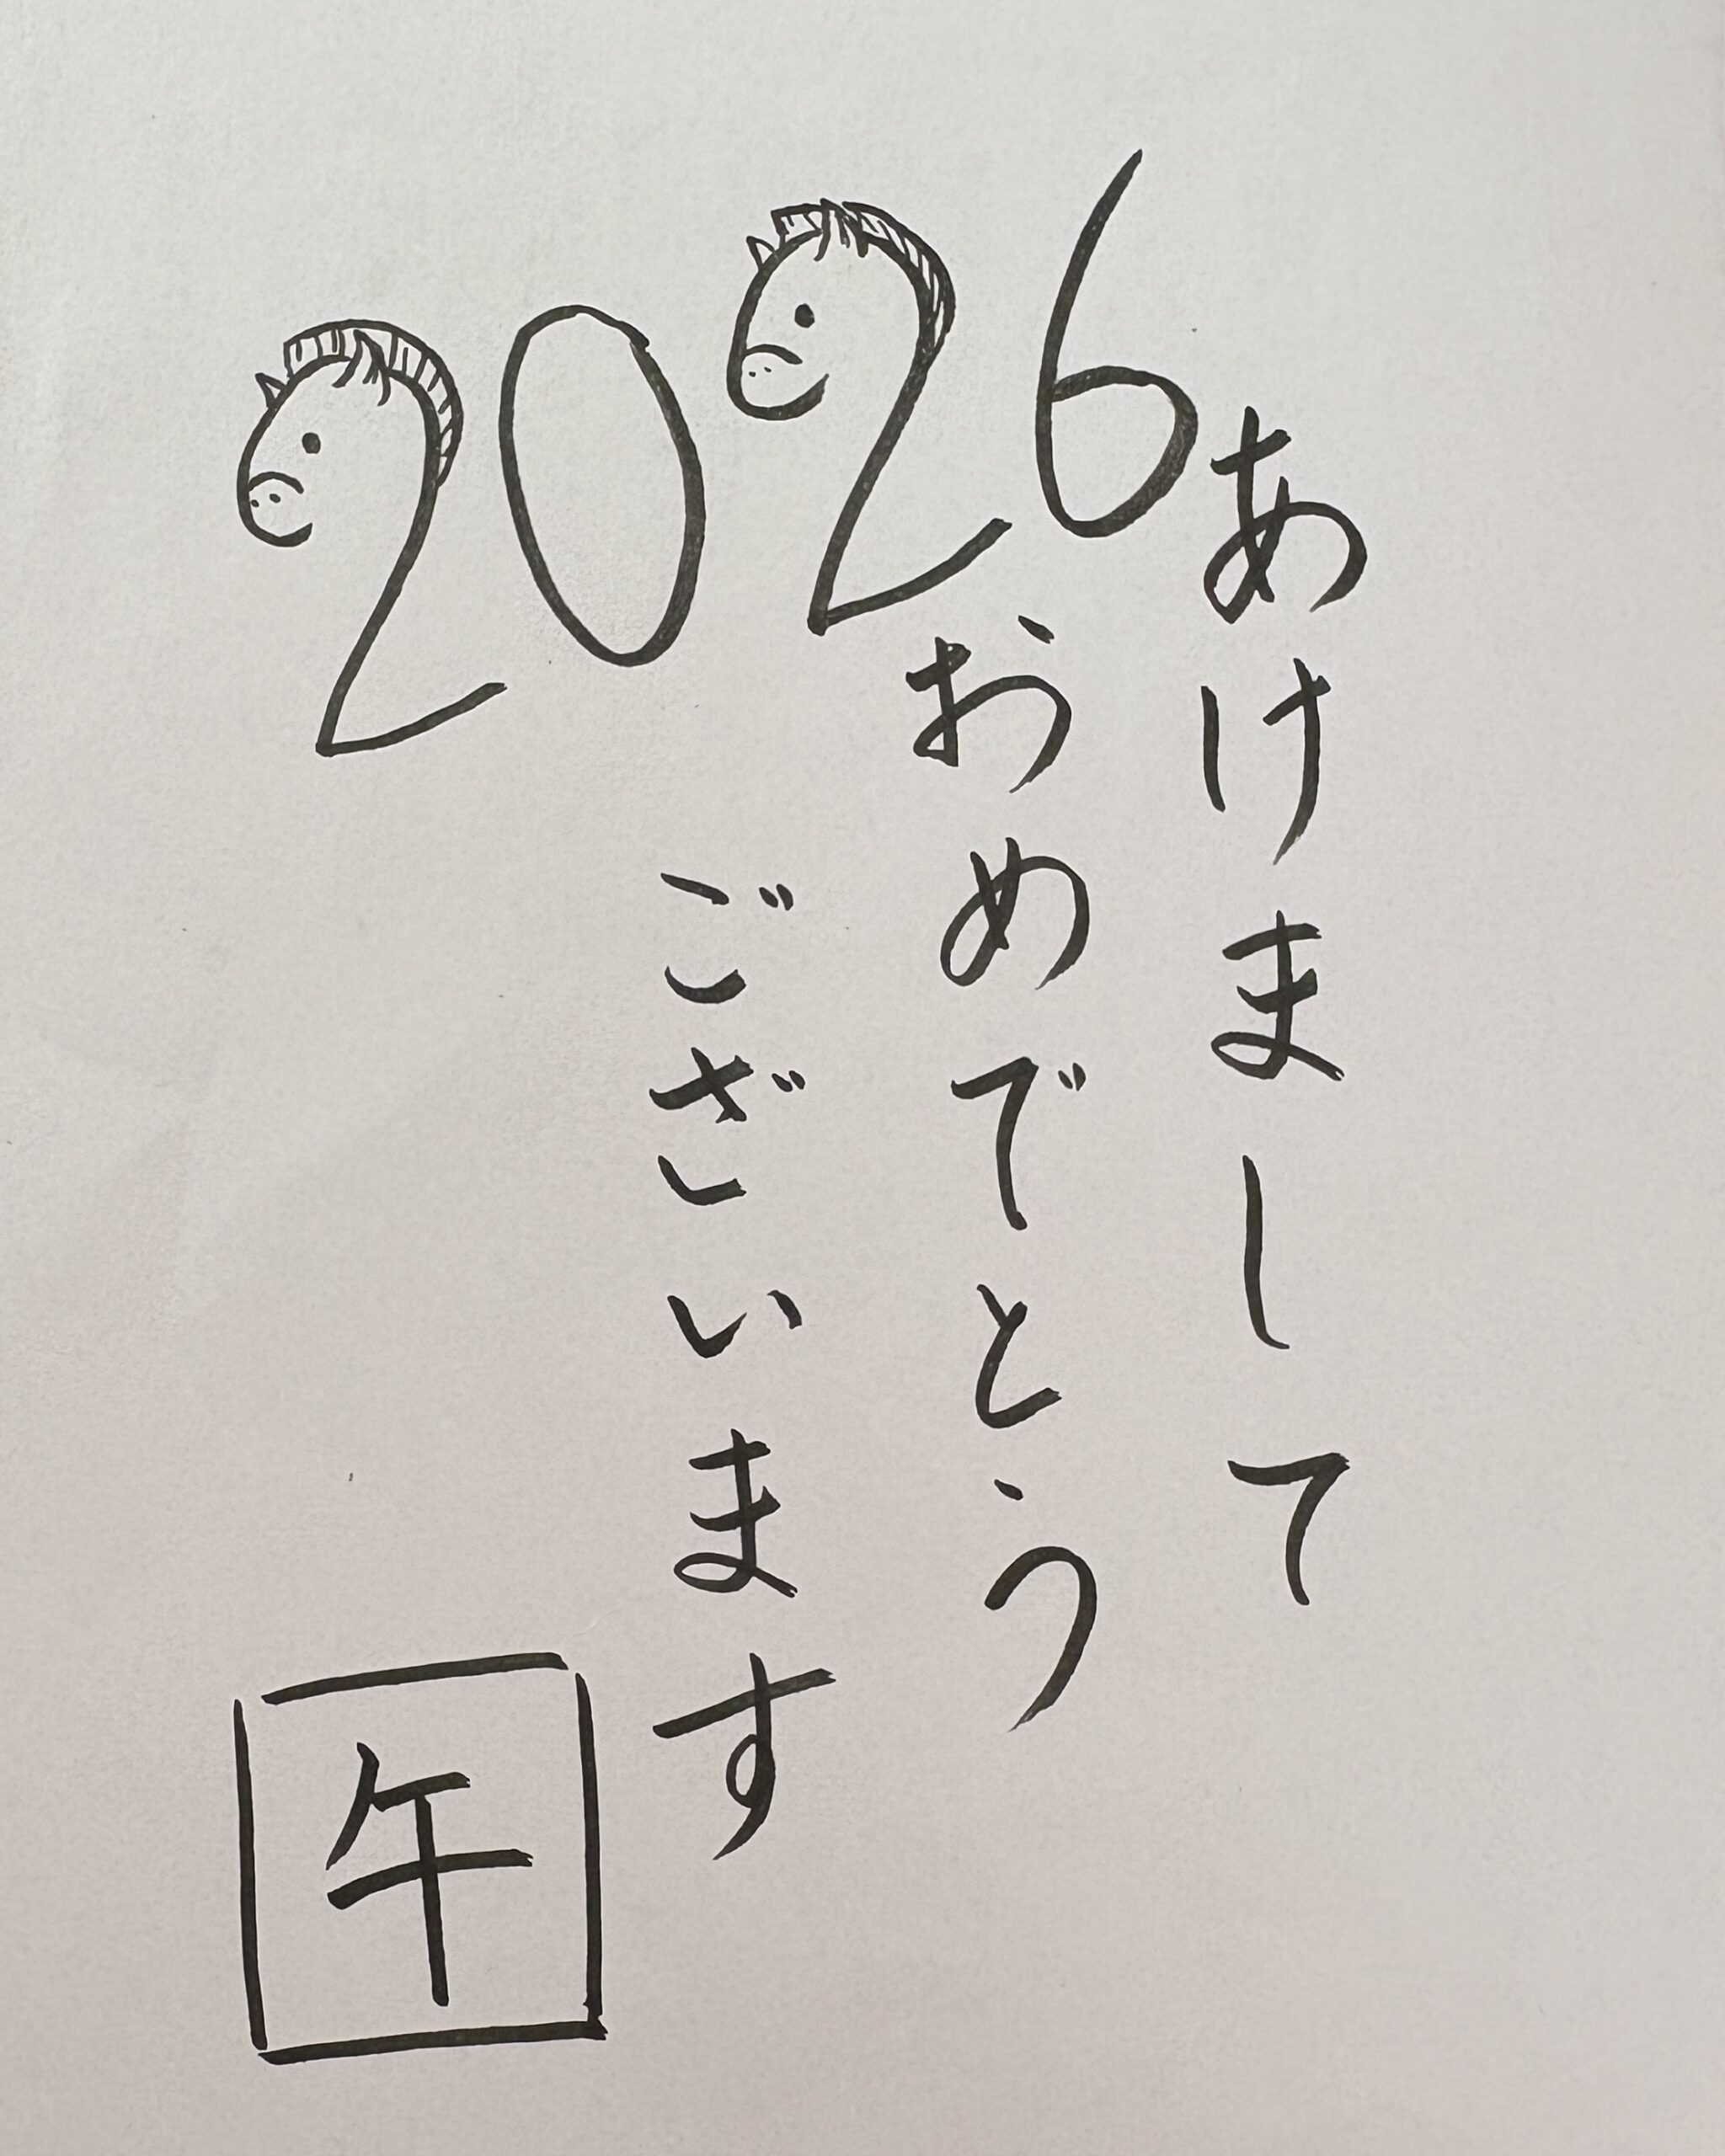 2026
あけまして
おめでとう
ございます
午